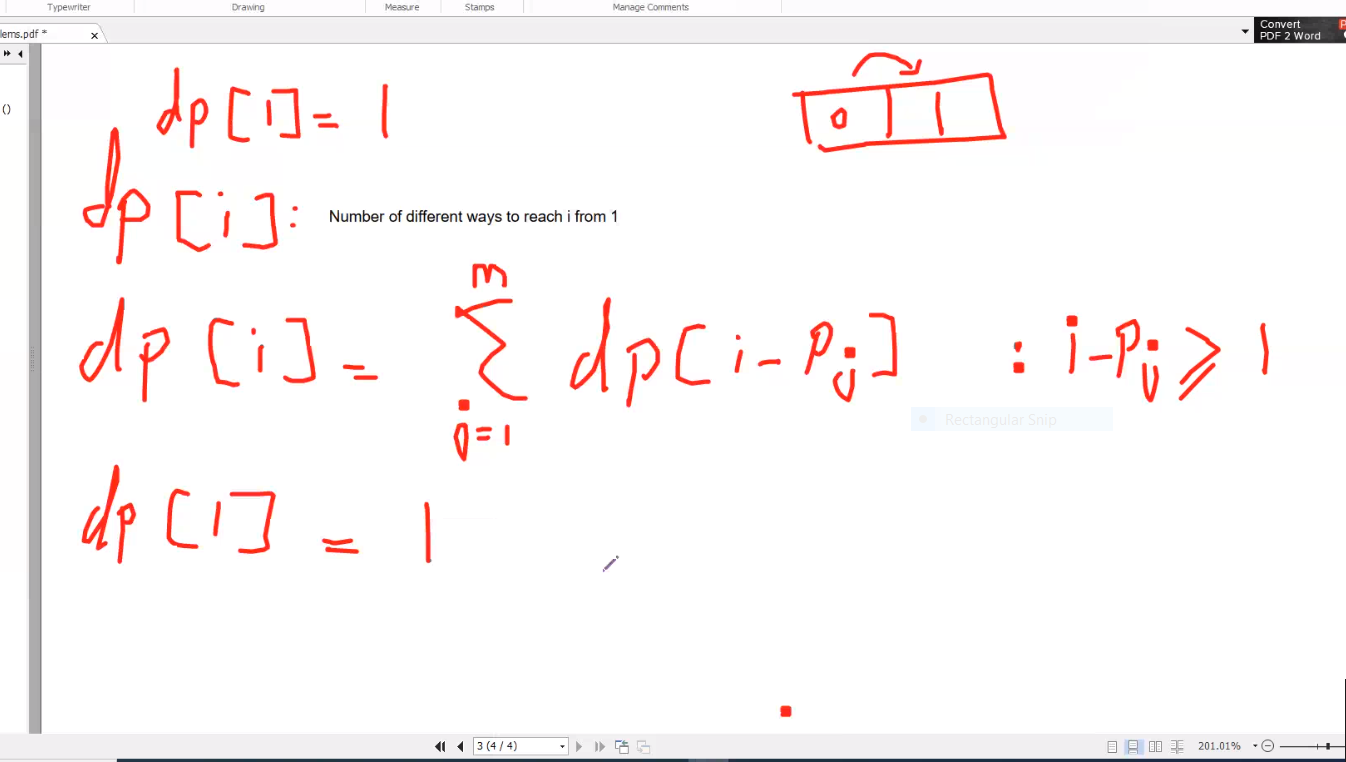 Typewriter Drawing Measure Stamps Manage Comments
lems.pdf * x
Convert
PDF 2 Word
()
dp[i] = 1
0 1
dp[i]: Number of different ways to reach i from 1
m
dp[i] = Σ dp[i - Pj] : i - Pj ⩾ 1
j=1
Rectangular Snip
dp[1] = 1
3 (4 / 4) 201.01%